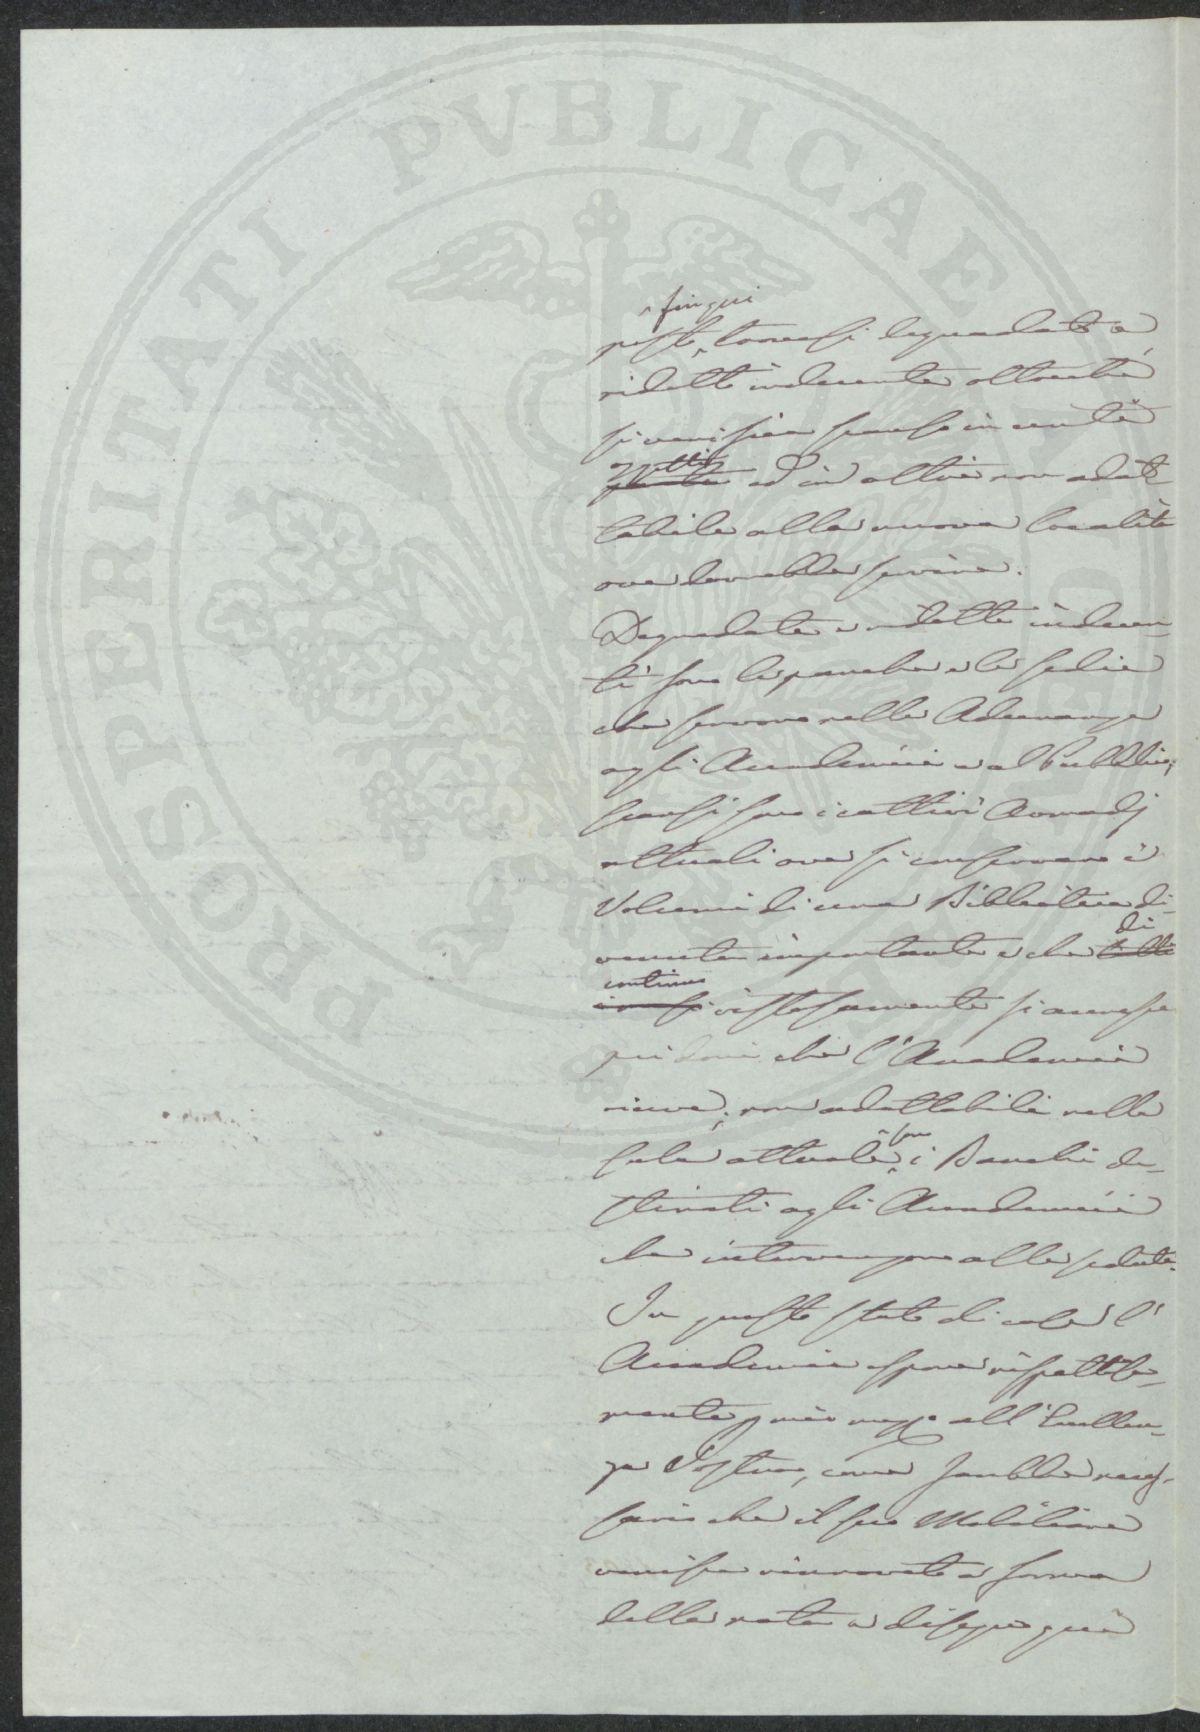 PROSPERITATI PVBLICAE AVGENDAE
fin qui
posto, trovasi degradato e
ridotto indecente oltreché
si verifica scarso in certi
oggetti ed in altri non adat-
tabile alla nuova località
ove dovrebbe servire.
Degradate e ridotte indecen-
ti sono le panche e le sedie
che servono nelle Adunanze
agli Accademici e al Pubblico,
scarsi sono i cattivi Armadj
attuali ove si conservano i
Volumi di una Biblioteca di-
di
venuta importante e che
continuo
vistosamente si accresce
pei doni che l'Accademia
riceve; non adattabili nella
sono
Sala attuale i Banchi de-
stinati agli Accademici
che intervengono alle sedute.
In questo stato di cose l'
Accademia espone rispettosa-
mente per mio mezzo all'Eccellen-
za Vostra, come sarebbe neces-
sario che il suo Mobiliare
venisse rinnovato a forma
delle note e disegni qui